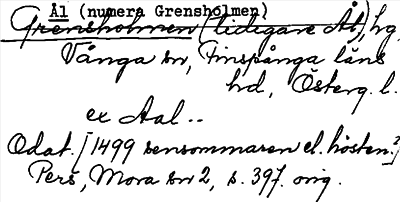 Ål (numera Grensholmen)
Grensholmen (tidigare Ål), hg,
Vånga sn, Finspånga läns
hd, Österg. l.
ex Aal ..
Odat. [1499 sensommaren el. hösten?]
Pers, Mora sn 2, s. 397. orig.